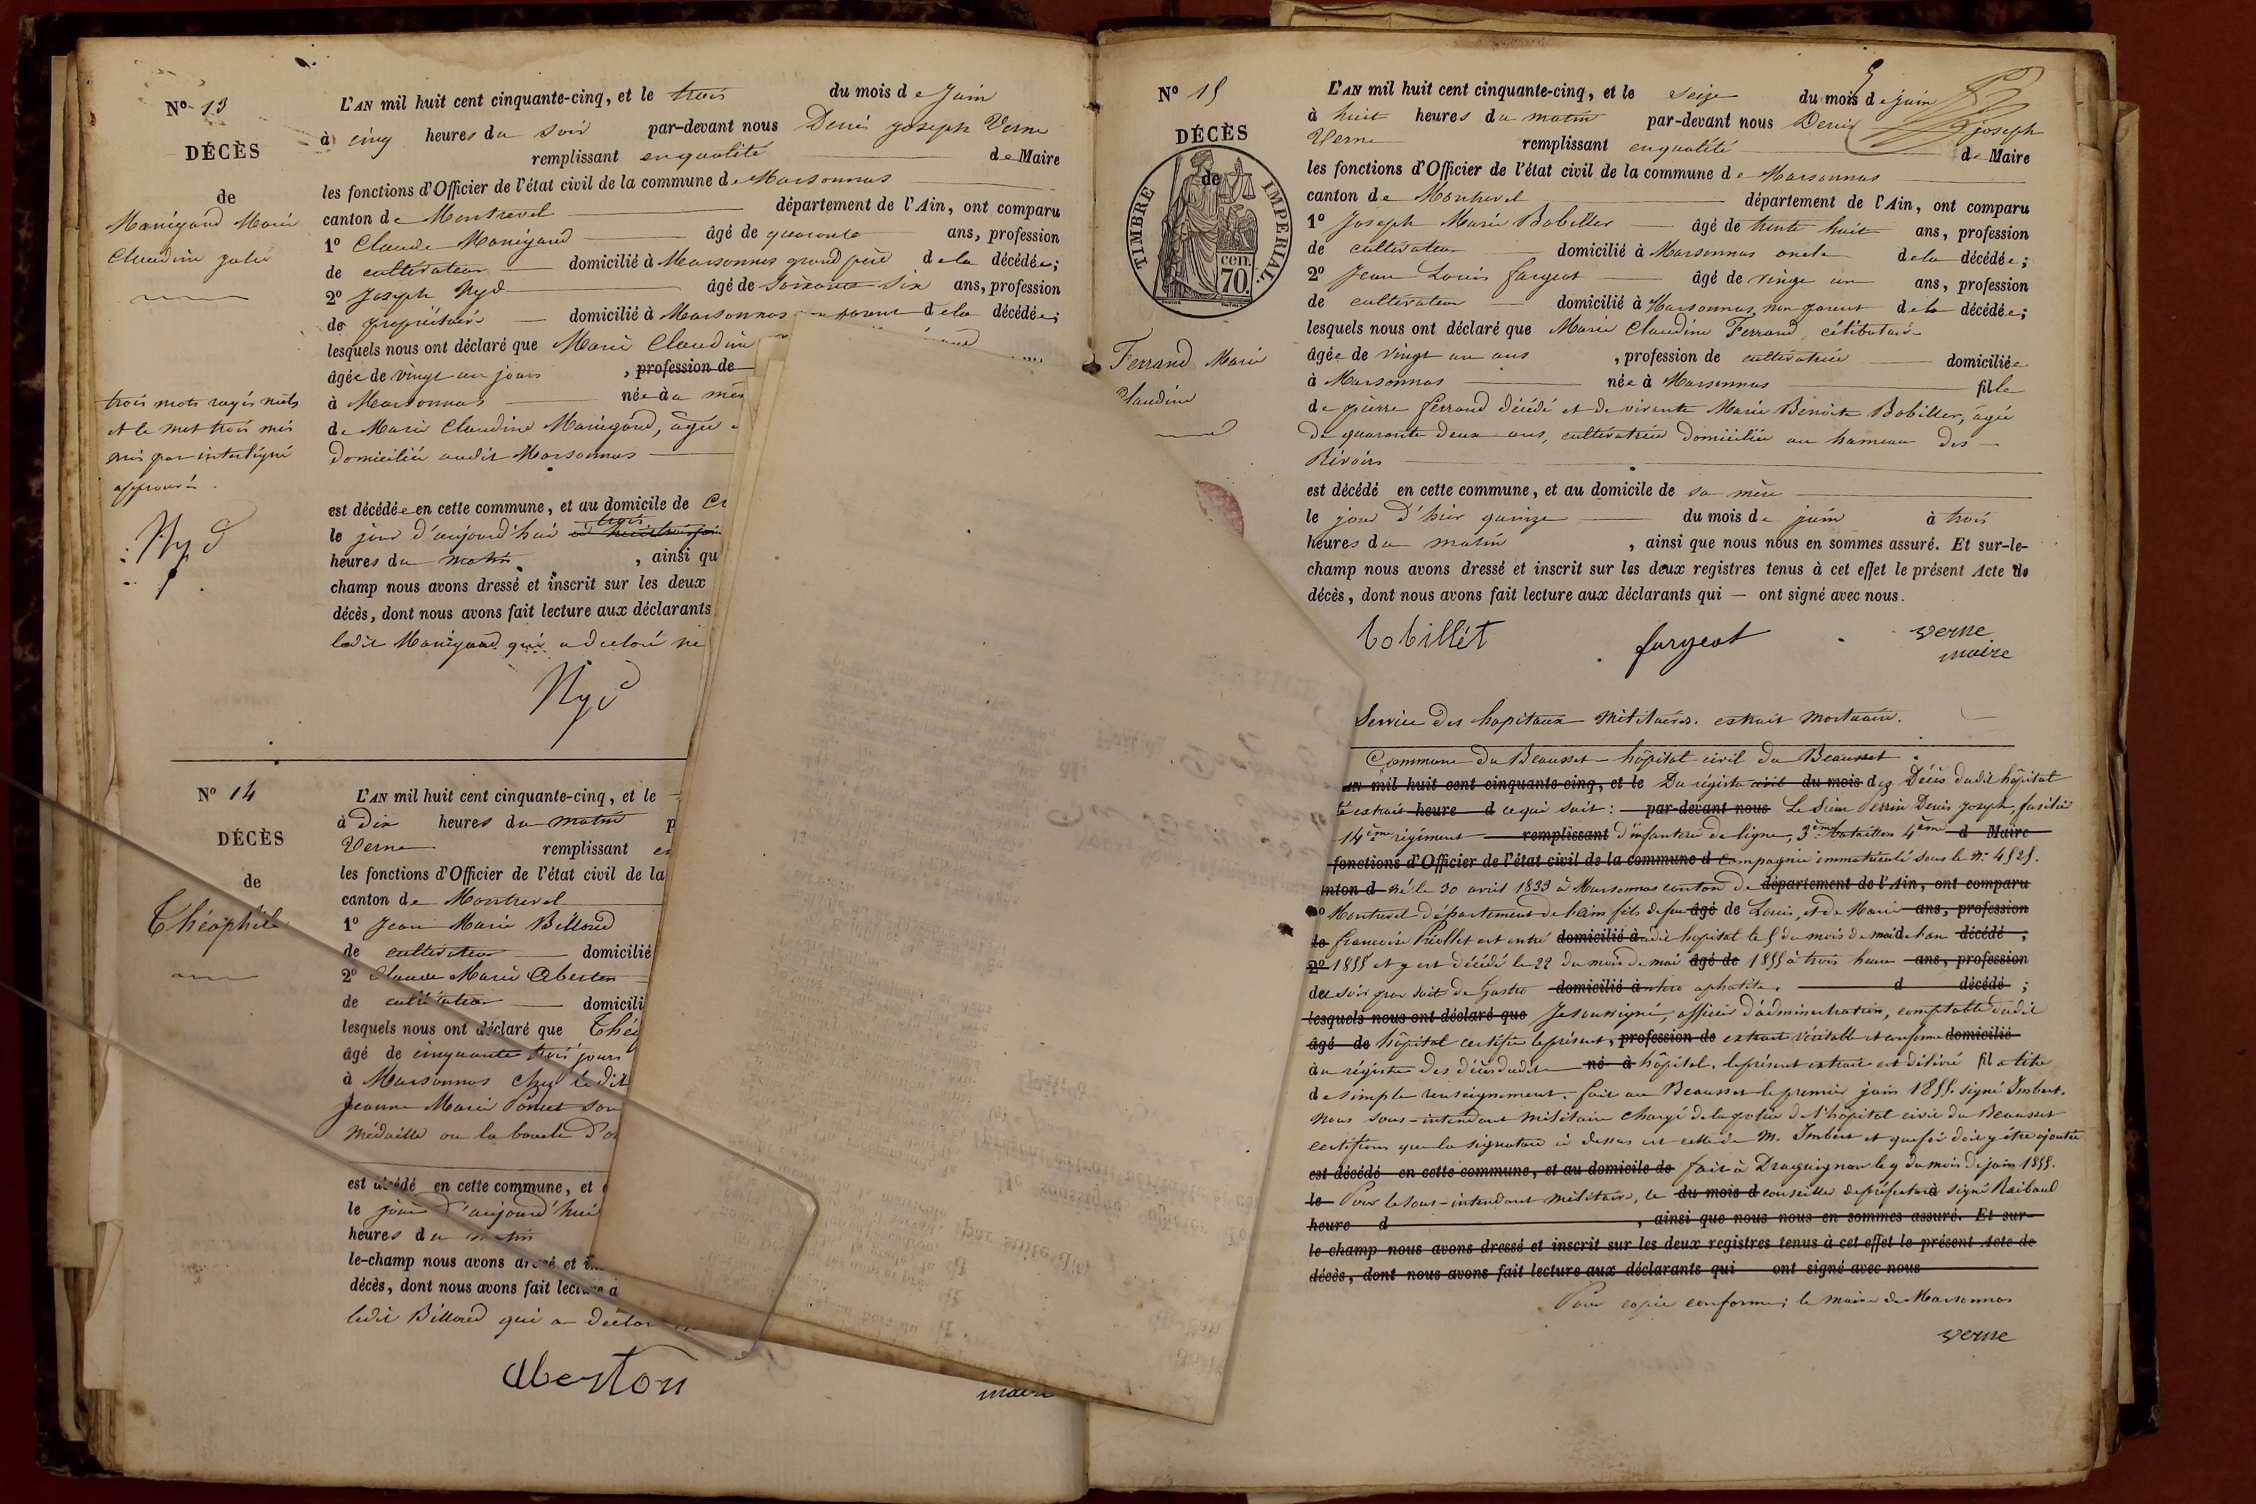 N° 13
DÉCÈS
de
Manigand Marie
Claudine Julie
trois mots rayés nuls
et le mot trois mis
mis par interligne
approuvés.
Nyd
L'AN mil huit cent cinquante-cinq, et le trois du mois de Juin
à cinq heures du soir par-devant nous Denis Joseph Verne
remplissant en qualité de Maire
les fonctions d'Officier de l'état civil de la commune de Marsonnas
canton de Montrevel département de l'Ain, ont comparu
1° Claude Manigand âgé de quarante ans, profession
de cultivateur domicilié à Marsonnas grand père de la décédée;
2° Joseph Nyd âgé de soixante six ans, profession
de propriétaire domicilié à Marsonnas parent de la décédée;
lesquels nous ont déclaré que Marie Claudine
âgée de vingt un jours, profession de
à Marsonnas née à
de Marie Claudine Manigand, âgée
domiciliée audit Marsonnas
est décédée en cette commune, et au domicile de
le jour d'aujourd'hui trois
heures du matin, ainsi qu
champ nous avons dressé et inscrit sur les deux
décès, dont nous avons fait lecture aux déclarants
ledit Manigand qui a déclaré ne
Nyd
N° 14
DÉCÈS
de
Théophile
L'AN mil huit cent cinquante-cinq, et le
à dix heures du matin p
Verne remplissant en
les fonctions d'Officier de l'état civil de la
canton de Montrevel
1° Jean Marie Billoud
de cultivateur domicilié
2° Claude Marie Aberton
de cultivateur domicili
lesquels nous ont déclaré que Thé
âgé de cinquante trois jours
à Marsonnas chez ledit
Jeanne Marie Poncet son
médaille ou la boucle d'o
est décédé en cette commune, et
le jour d'aujourd'hui
heures du matin
le-champ nous avons dressé et in
décès, dont nous avons fait lecture a
ledit Billoud qui a déclar
Aberton
maire
N° 15
DÉCÈS
de
TIMBRE IMPERIAL
70 cen.
Ferrand Marie
Claudine
L'AN mil huit cent cinquante-cinq, et le seize du mois de juin
à huit heures du matin par-devant nous Denis Joseph
Verne remplissant en qualité de Maire
les fonctions d'Officier de l'état civil de la commune de Marsonnas
canton de Montrevel département de l'Ain, ont comparu
1° Joseph Marie Bobillet âgé de trente huit ans, profession
de cultivateur domicilié à Marsonnas oncle de la décédée;
2° Jean Louis Fargeot âgé de vingt un ans, profession
de cultivateur domicilié à Marsonnas, non parent de la décédée;
lesquels nous ont déclaré que Marie Claudine Ferrand célibataire
âgée de vingt un ans, profession de cultivatrice domiciliée
à Marsonnas née à Marsonnas fille
de pierre ferrand décédé et de vivante Marie Benoite Bobillet, âgée
de quarante deux ans, cultivatrice domiciliée au hameau des
Rivoirs
est décédé en cette commune, et au domicile de sa mère
le jour d'hier quinze du mois de juin à trois
heures du matin, ainsi que nous nous en sommes assuré. Et sur-le-
champ nous avons dressé et inscrit sur les deux registres tenus à cet effet le présent Acte de
décès, dont nous avons fait lecture aux déclarants qui — ont signé avec nous.
bobillét fargeot verne
maire
Service des hopitaux militaires. extrait mortuaire.
Commune du Beausset - hôpital civil du Beausset
AN mil huit cent cinquante-cinq, et le Du registre civil du mois des Décès dudit hôpital
a été extrait heure d ce qui suit: par-devant nous Le Sieur Perrin Denis Joseph, fusilier
14ème régiment remplissant d'infanterie de ligne, 3ème bataillon 4ème d Maire
fonctions d'Officier de l'état civil de la commune d compagnie immatriculé sous le N° 4525.
nton d né le 30 avril 1833 à Marsonnas canton de département de l'Ain, ont comparu
1° Montrevel département de l'ain fils de feu âgé de Louis, et de Marie ans, profession
de francoise Priollet est entré domicilié à audit hopital le 5 du mois de mai de l'an décédé ;
2° 1855 et y est décédé le 22 du mois de mai âgé de 1855 à trois heures ans, profession
de du soir par suite de Gastro domicilié à d décédé ;
lesquels nous ont déclaré que Je soussigné, officier d'administration, comptable dudit
âgé de hôpital certifie le présent, profession de extrait véritable et conforme domicilié
à au registre des décès dudit né à hôpital. le présent extrait est délivré fil a titre
de simple renseignement. fait au Beausset le premier juin 1855. signé Imbert.
nous sous-intendant militaire chargé de la police de l'hôpital civil du Beausset
certifions que la signature ci dessus est celle de M. Imbert et que foi doit y être ajoutée
est décédé en cette commune, et au domicile de fait à Draguignan le 9 du mois de juin 1855.
le Pour le sous-intendant militaire, le du mois d conseiller de préfecture à signé Raibaud
heure d , ainsi que nous nous en sommes assuré. Et sur-
le-champ nous avons dressé et inscrit sur les deux registres tenus à cet effet le présent Acte de
décès, dont nous avons fait lecture aux déclarants qui ont signé avec nous
Pour copie conforme; le maire de Marsonnas
verne